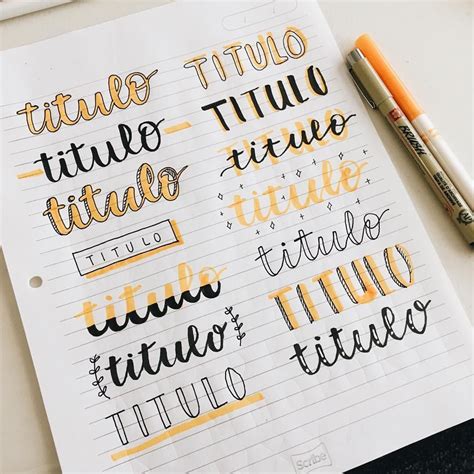 titulo
titulo
titulo
TITULO
titulo
titulo
TITULO
TITULO
TITULO
titulo
titulo
titulo
TITULO
titulo
Scribe